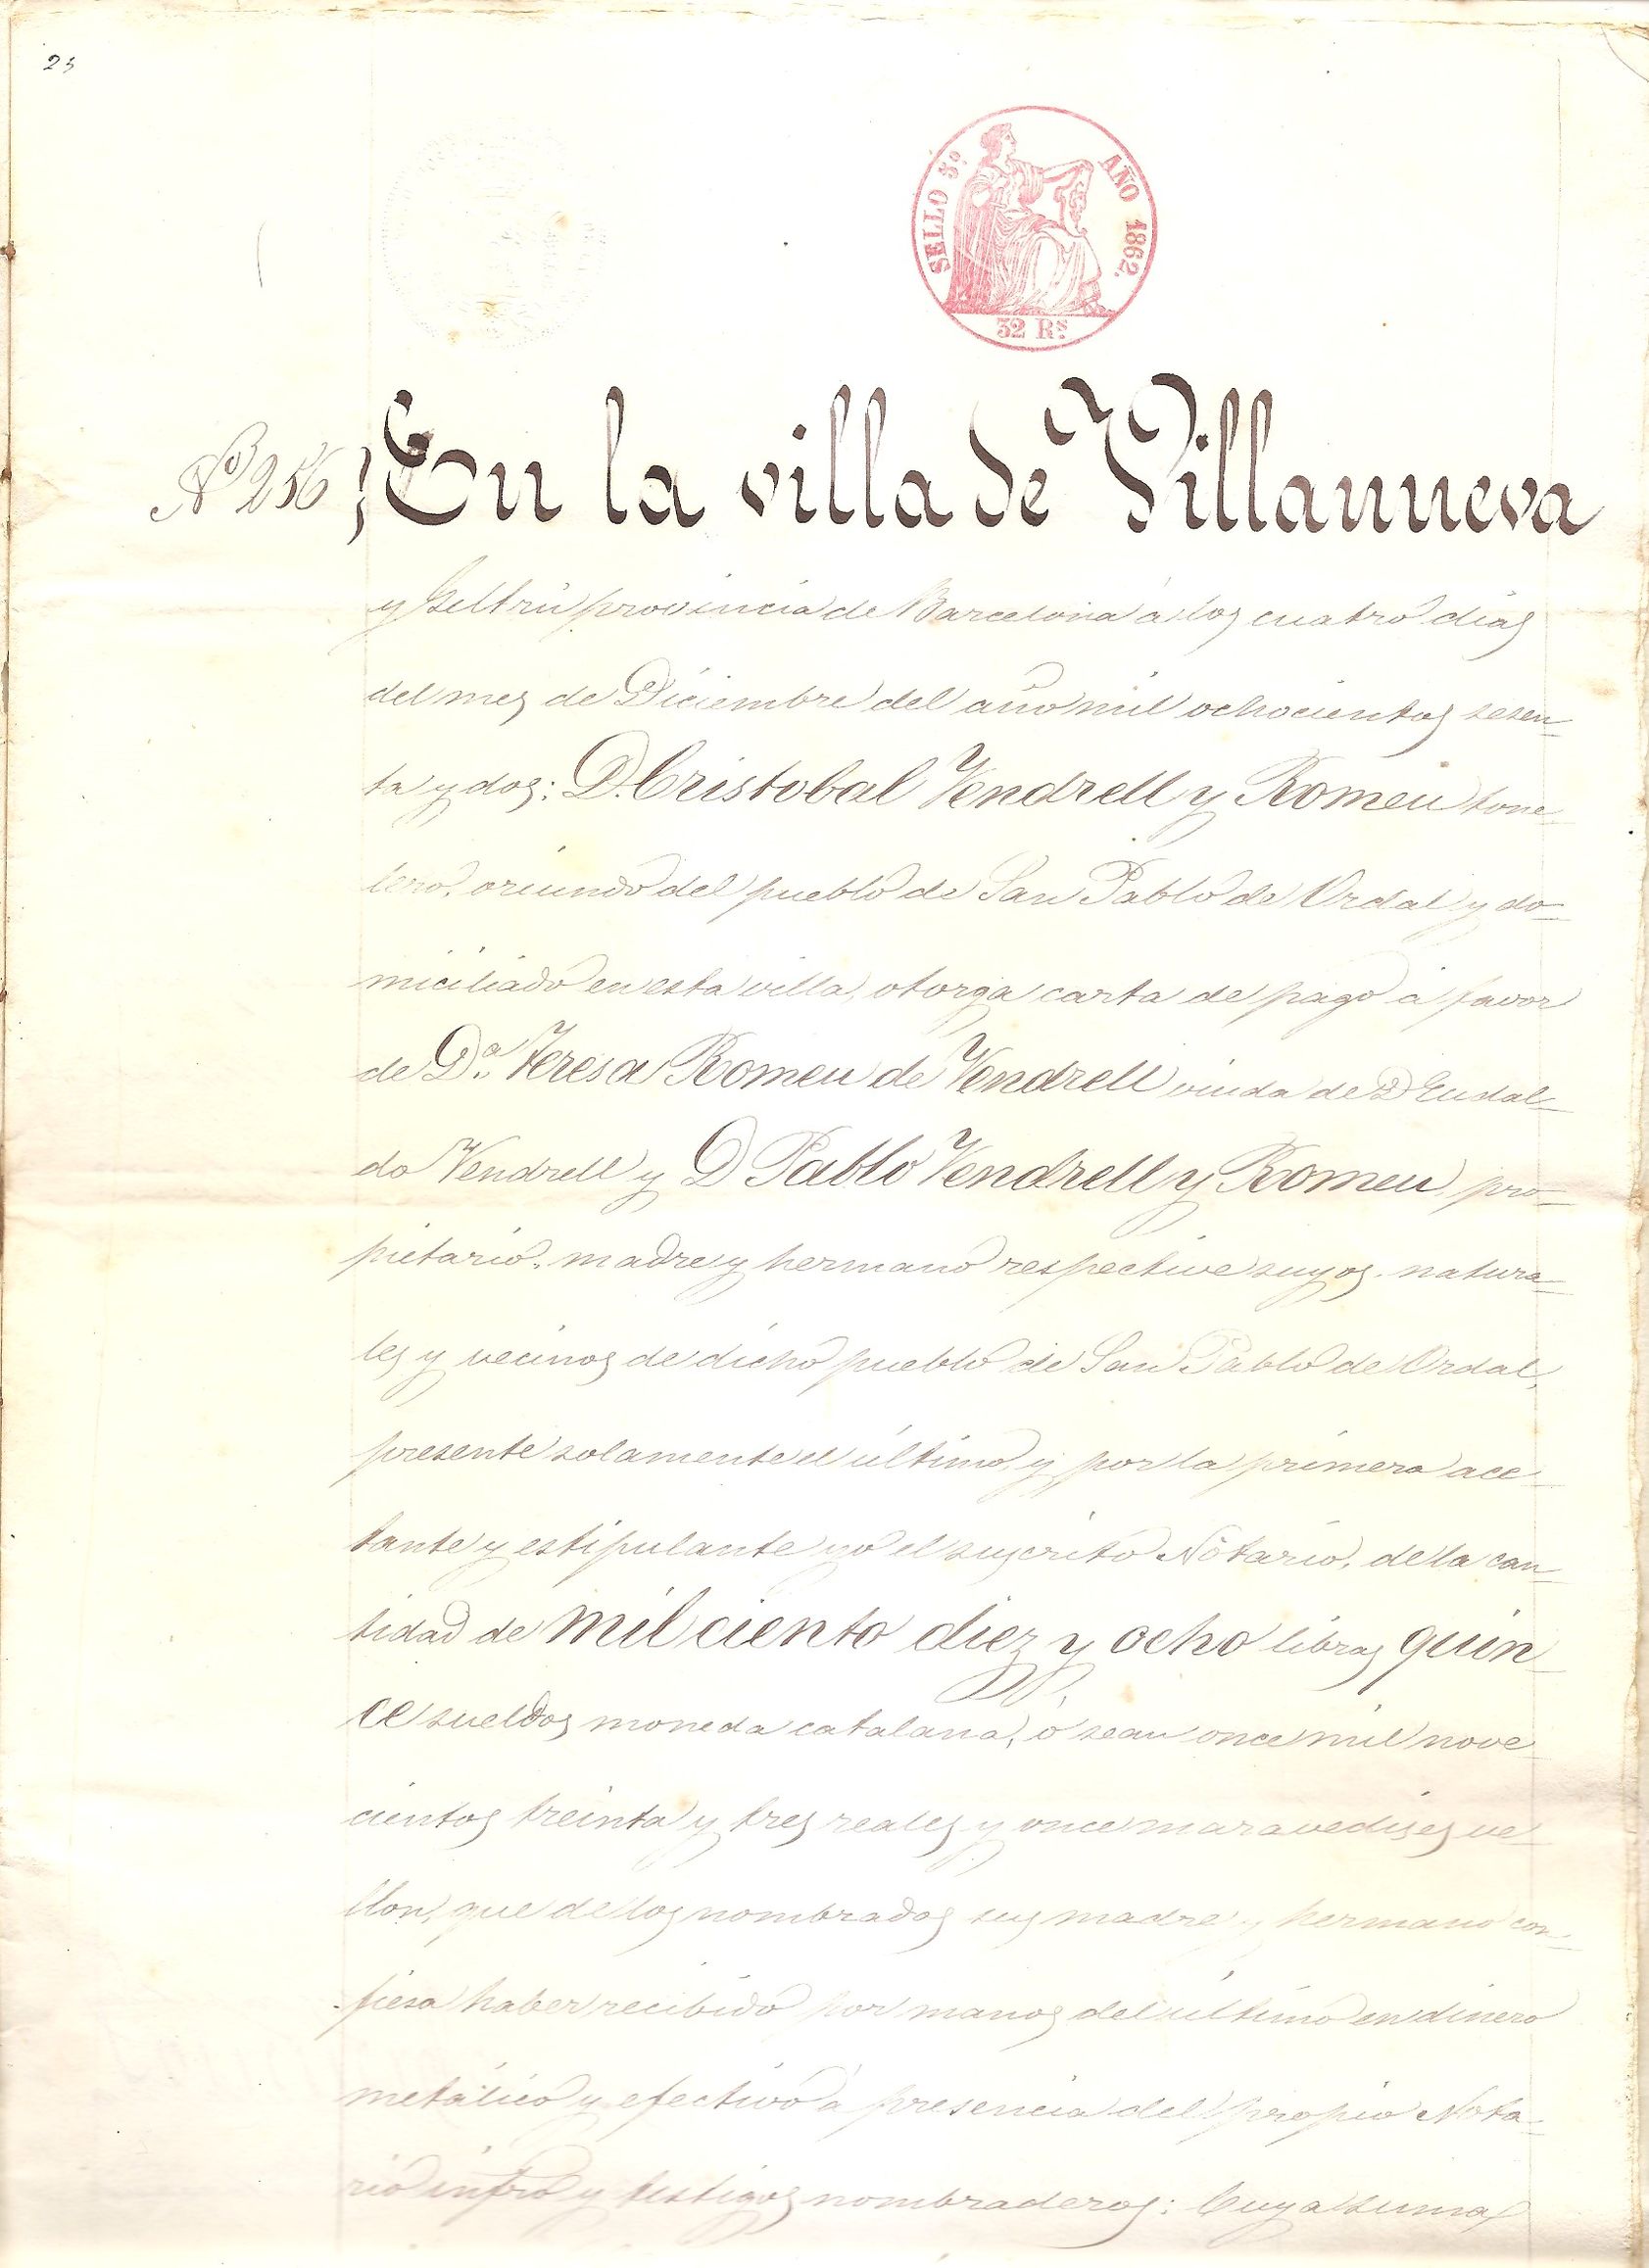 25
SELLO 3º AÑO 1862.
32 Rs
Nº 256 En la villa de Villanueva
y Geltrú provincia de Barcelona á los cuatro dias
del mes de Diciembre del año mil ochocientos sesen-
ta y dos: D. Cristobal Vendrell y Romeu tone-
lero, oriundo del pueblo de San Pablo de Ordal y do-
miciliado en esta villa, otorga carta de pago á favor
de D.ª Teresa Romeu de Vendrell viuda de D Eudal-
do Vendrell y D Pablo Vendrell y Romeu pro-
pietario, madre y hermano respective suyos, natura-
les y vecinos de dicho pueblo de San Pablo de Ordal,
presente solamente el último, y por la primera ace-
tante y estipulante yo el suscrito Notario, de la can-
tidad de mil ciento diez y ocho libras quin-
ce sueldos moneda catalana, ó sean once mil nove-
cientos treinta y tres reales y once maravedises ve-
llon, que de los nombrados sus madre y hermano con-
fiesa haber recibido por manos del último en dinero
metálico y efectivo á presencia del propio Nota-
rio infro y testigos nombraderos: Cuya suma